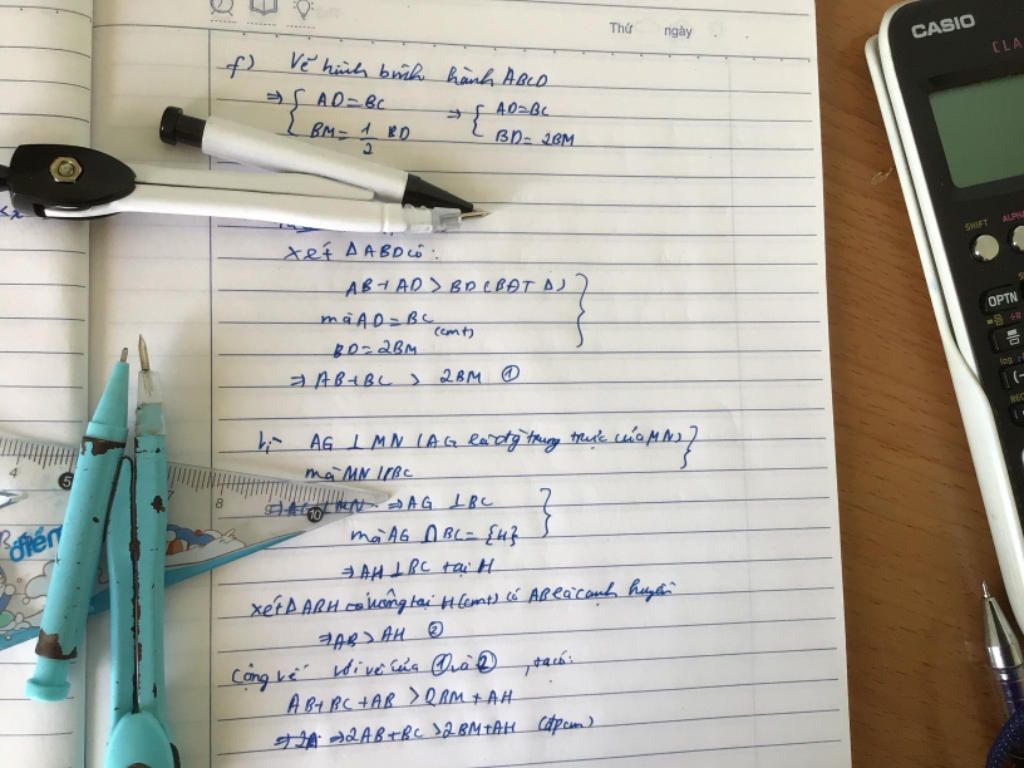 Thứ ngày
f) Vẽ hình bình hành ABCD
⇒ { AD = BC ⇒ { AD = BC
BM = 1/2 BD BD = 2BM
xét Δ ABD có:
AB + AD > BD (BĐT Δ) }
mà AD = BC
(cmt)
BD = 2BM
⇒ AB + BC > 2BM ①
AG ⊥ MN (AG là đg trung trực của MN) }
mà MN // BC
⇒ AG ⊥ MN ⇒ AG ⊥ BC }
mà AG ∩ BC = {H}
⇒ AH ⊥ BC tại H
xét Δ ABH vuông tại H (cmt) có AB là cạnh huyền
⇒ AB > AH ②
Cộng vế với vế của ① và ②, ta có:
AB + BC + AB > 2BM + AH
⇒ 2A ⇒ 2AB + BC > 2BM + AH (đpcm)
CASIO
CLA
SHIFT
ALPHA
OPTN
log
(-)
4 5 7 8 10
điểm